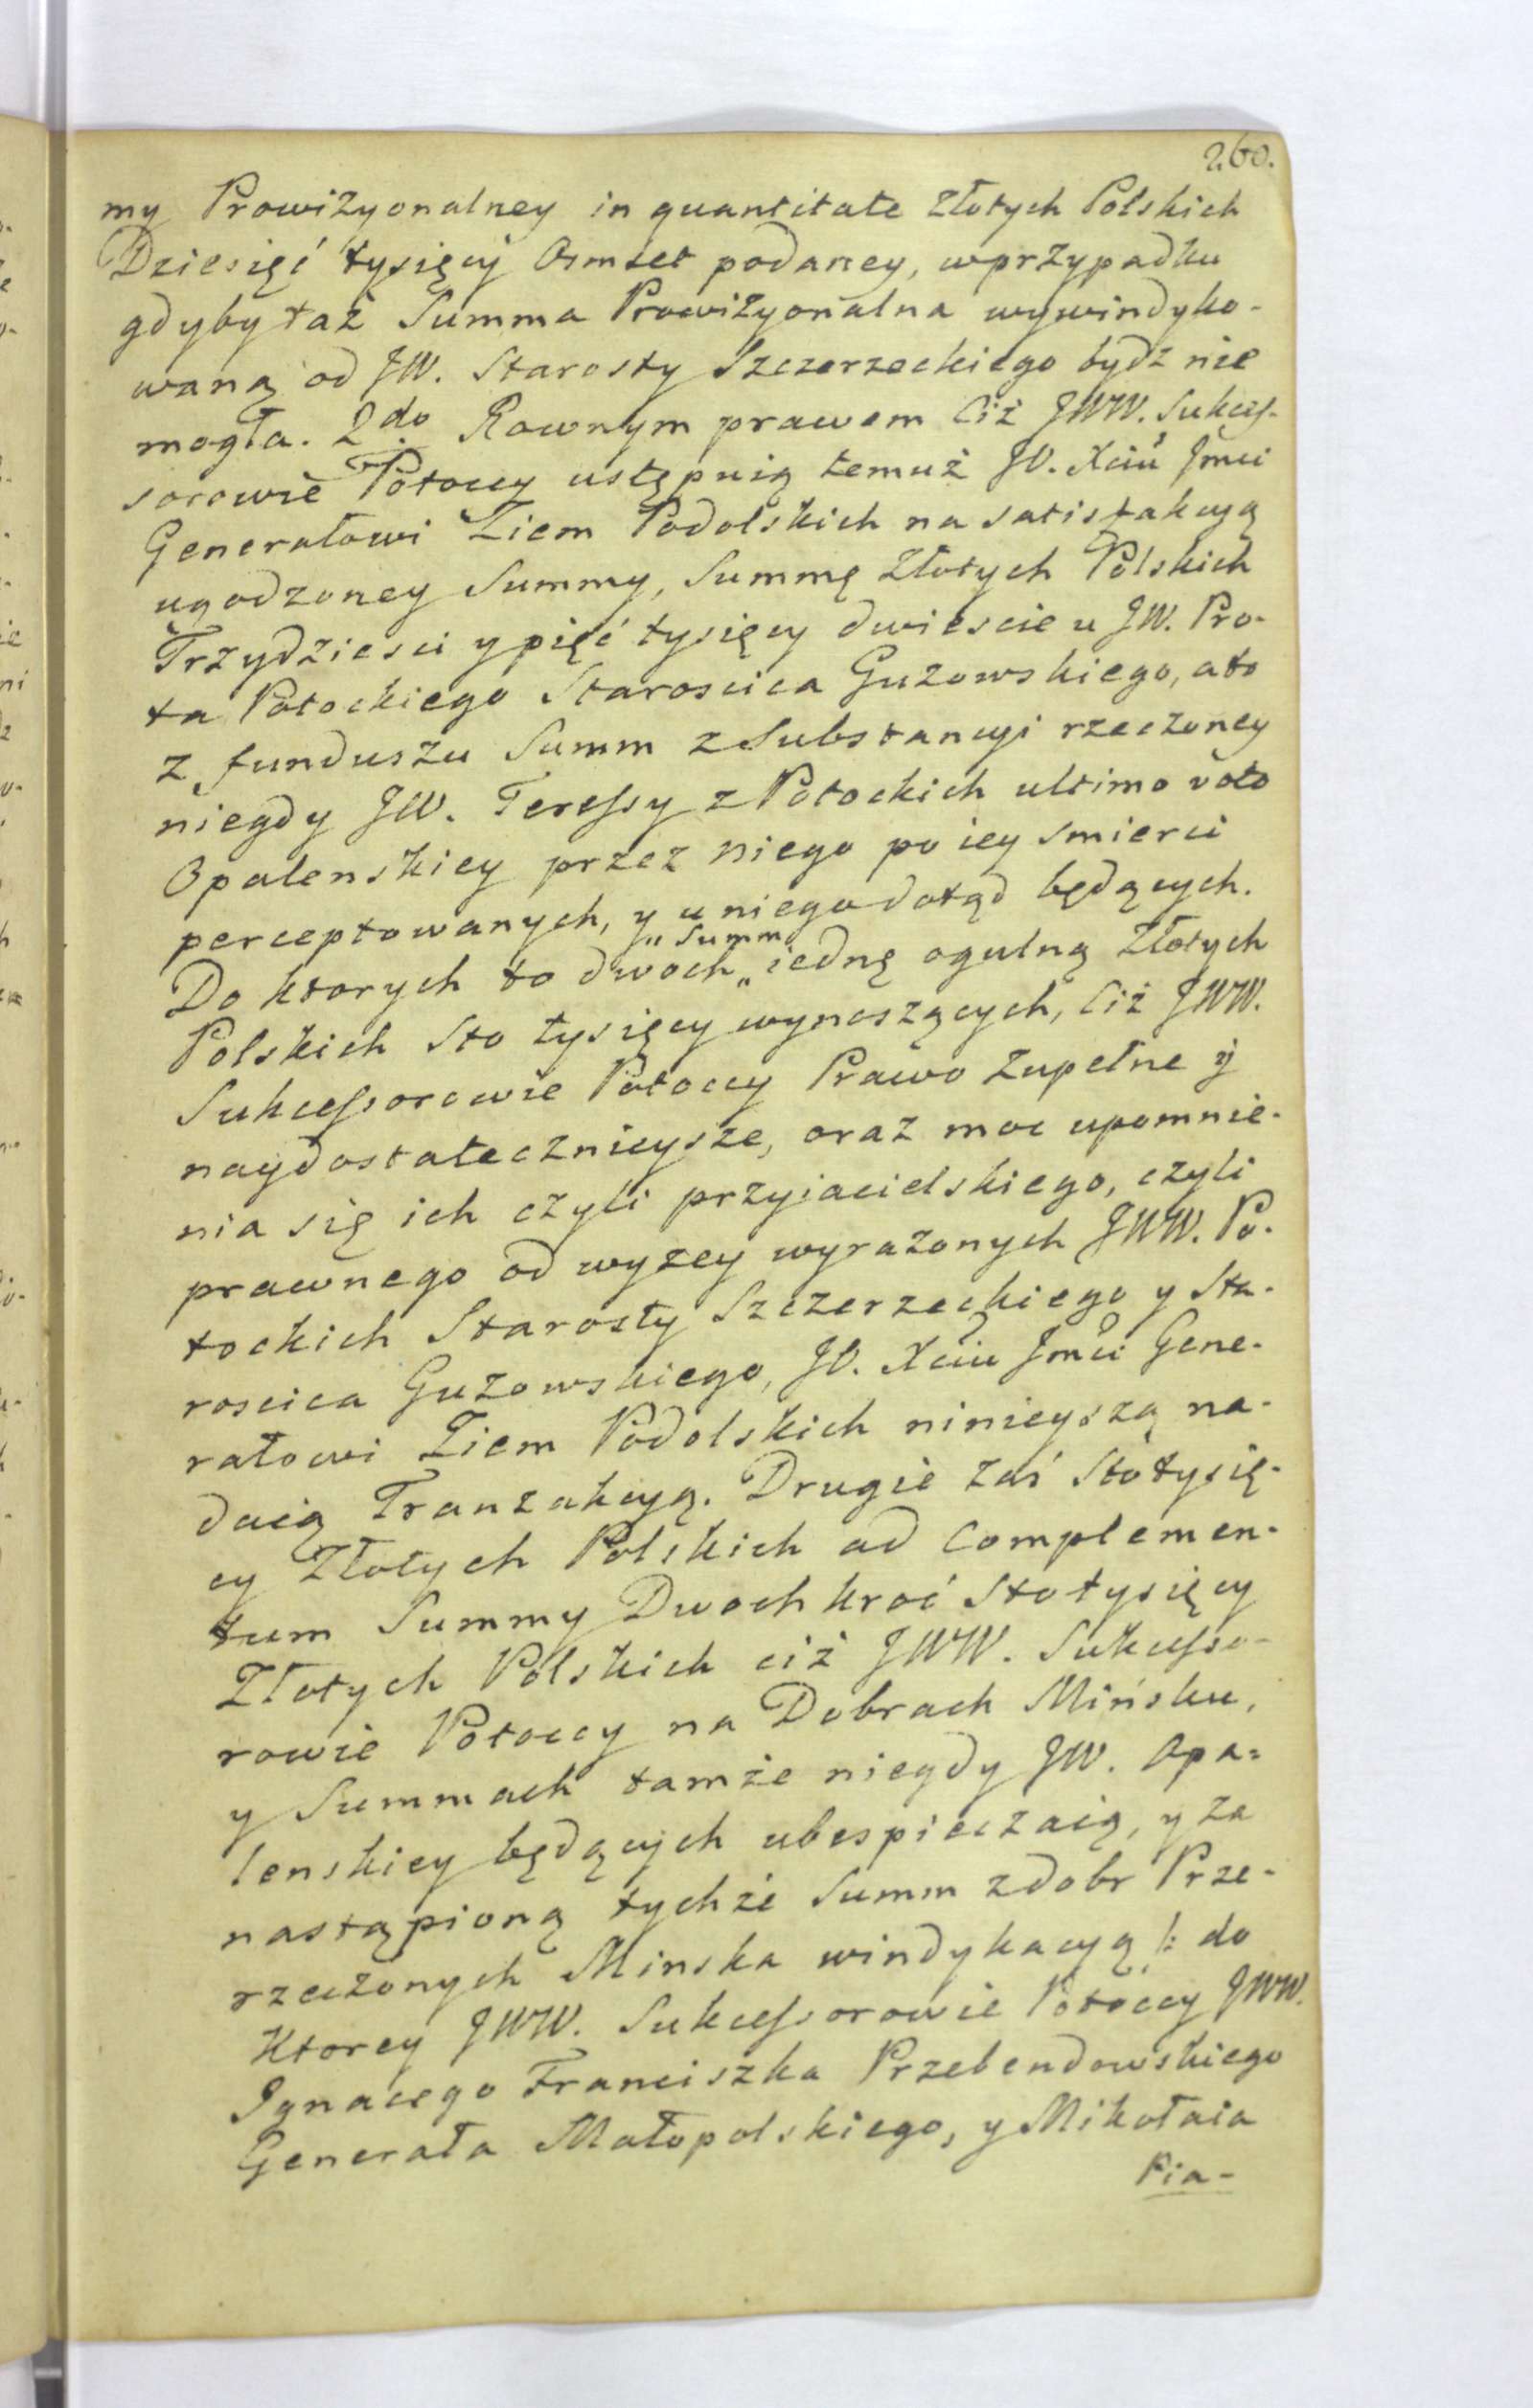 260.
my Prowizyonalney in quantitate Złotych Polskich
Dziesięć tysięcy Osmset podaney, w przypadku
gdyby taż Summa Prowizyonalna wywindyko-
waną od JW. Starosty Szczerzeckiego bydz nie
mogła. 2do. Rownym prawem Ciż JWW. Sukces-
sorowie Potoccy ustępuią temuż JO. Xciu Jmci
Generałowi Ziem Podolskich na satisfakcyą
ugodzoney Summy, Summę Złotych Polskich
Trzydziesci y pięć tysięcy dwiescie u JW. Pro-
ta Potockiego Staroscica Guzowskiego, a to
z funduszu Summ z Substancyi rzeczoney
niegdy JW. Teressy z Potockich ultimo voto
Opalenskiey przez niego po iey smierci
perceptowanych, y u niego dotąd będących.
Do ktorych to dwoch „ Summ „ iedną ogulną Złotych
Polskich Sto tysięcy wynoszących, Ciż JWW.
Sukcessorowie Potoccy Prawo Zupełne ÿ
naydostatecznieysze, oraz moc upomnie-
nia się ich czyli przyiacielskiego, czyli
prawnego od wyzey wyrazonych JWW. Po-
tockich Starosty Szczerzeckiego y Sta-
roscica Guzowskiego, JO. Xciu Jmci Gene-
rałowi Ziem Podolskich ninieyszą na-
daią Tranzakcyą. Drugie zaś Sto tysię-
cy Złotych Polskich ad Complemen-
tum Summy Dwoch kroć Sto tysięcy
Złotych Polskich ciż JWW. Sukcesso-
rowie Potoccy na Dobrach Mińsku,
y Summach tamże niegdy JW. Opa=
lenskiey będących ubespieczaią, y za
nastąpioną tychże Summ z dobr Prze-
rzeczonych Minska windykacyą /: do
Ktorey JWW. Sukcessorowie Potoccy JWW.
Ignacego Franciszka Przebendowskiego
Generała Małopolskiego, y Mikołaia
Pia-